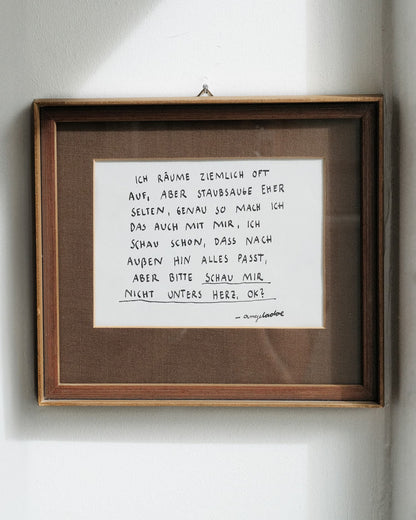 ICH RÄUME ZIEMLICH OFT
AUF, ABER STAUBSAUGE EHER
SELTEN, GENAU SO MACH ICH
DAS AUCH MIT MIR, ICH
SCHAU SCHON, DASS NACH
AUßEN HIN ALLES PASST,
ABER BITTE SCHAU MIR
NICHT UNTERS HERZ, OK?